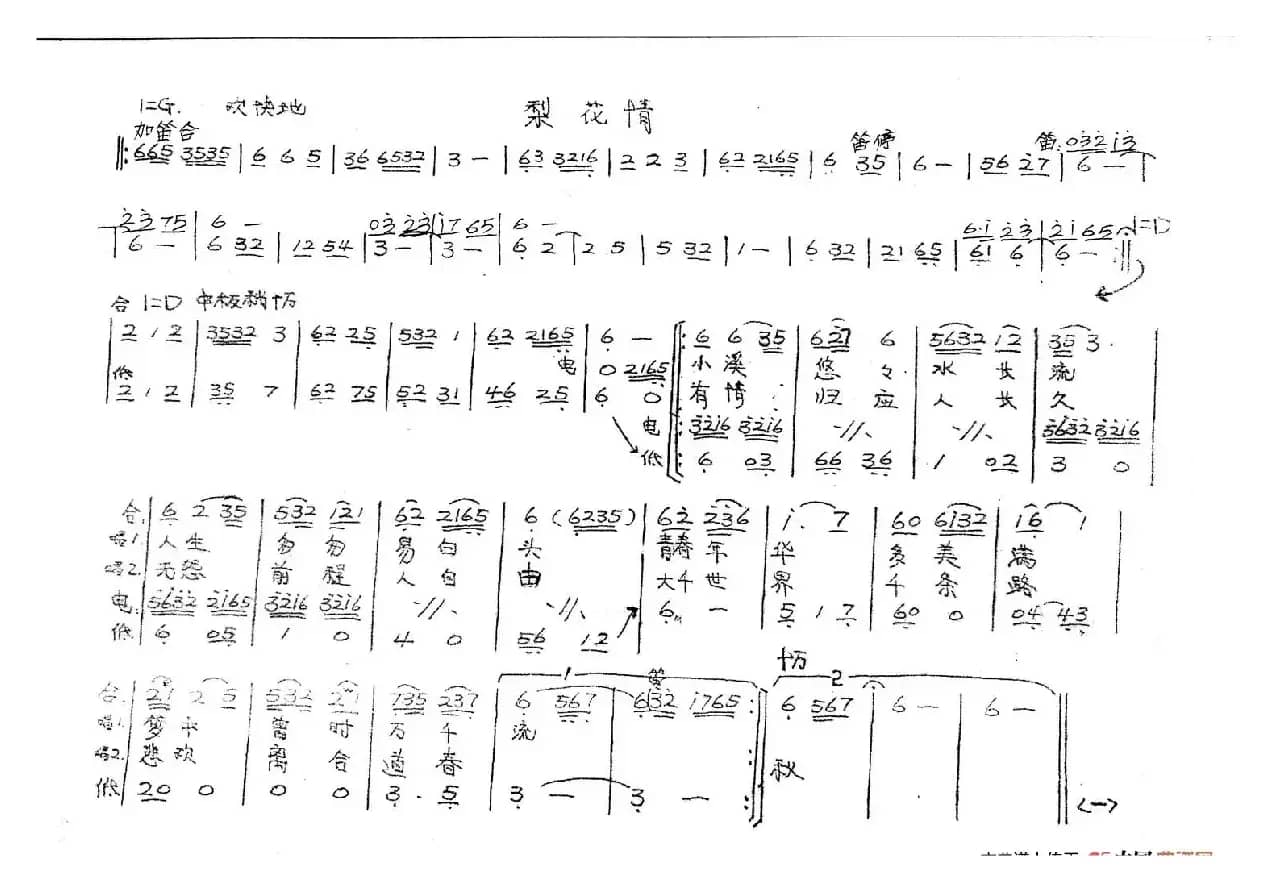 1=G. 欢快地 梨花情
加笛合 笛停 笛:
‖: 665 3535 | 6 6 5 | 36 6532 | 3 — | 63 3216 | 2 2 3 | 62 2165 | 6 35 | 6 — | 56 27 | 6 — |
032 13
23 75 | 6 — 03 23 | 17 65 | 6 — 6·1 23 | 21 65 1=D
6 — | 6 32 | 12 54 | 3 — | 3 — | 6 2 | 2 5 | 5 32 | 1 — | 6 32 | 21 65 | 61 6 | 6 — ‖
合 1=D 中板稍慢
2 1 2 | 3532 3 | 62 25 | 532 1 | 62 2165 | 6 — ‖: 6 6 35 | 627 6 | 5632 12 | 35 3. |
电 0 2165 小溪 悠々 水长 流
低 2 1 2 | 35 7 | 62 75 | 52 31 | 46 25 | 6 0 有情 归应 人长 久
电 3216 3216 | -//- | -//- | 5632 3216
低 6 03 | 66 36 | 1 02 | 3 0
合. 6 2 35 | 532 121 | 62 2165 | 6 (6235) | 62 236 | 1. 7 | 60 6132 | 16 1
唱1. 人生 匆匆 易白 头 青春年 华 多美 满
唱2. 无怨 前程 人自 由 大千世 界 千条 路
电. 5632 2165 | 3216 3216 | -//- | -//- | 6 — | 5 1 7 | 60 0 | 04 43
低 6 05 | 1 0 | 4 0 | 56 12
1 笛 2
合. 21 2 5 | 532 27 | 735 237 | 6 567 | 632 1765 :‖ 6 567 | 6 — | 6 — ‖
唱1. 梦 昔时 万千 流
唱2. 悲欢 离合 道春 秋
低 20 0 | 0 0 | 3 . 5 | 3 — | 3 — :‖ <一>